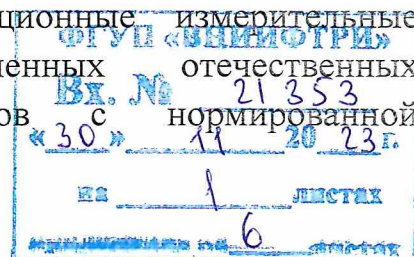 ционные измерительные
ФГУП «ВНИИФТРИ»
ленных отечественных
Вх. № 21353
ов с нормированной
«30» 11 2023 г.
на 1 листах
6 листах